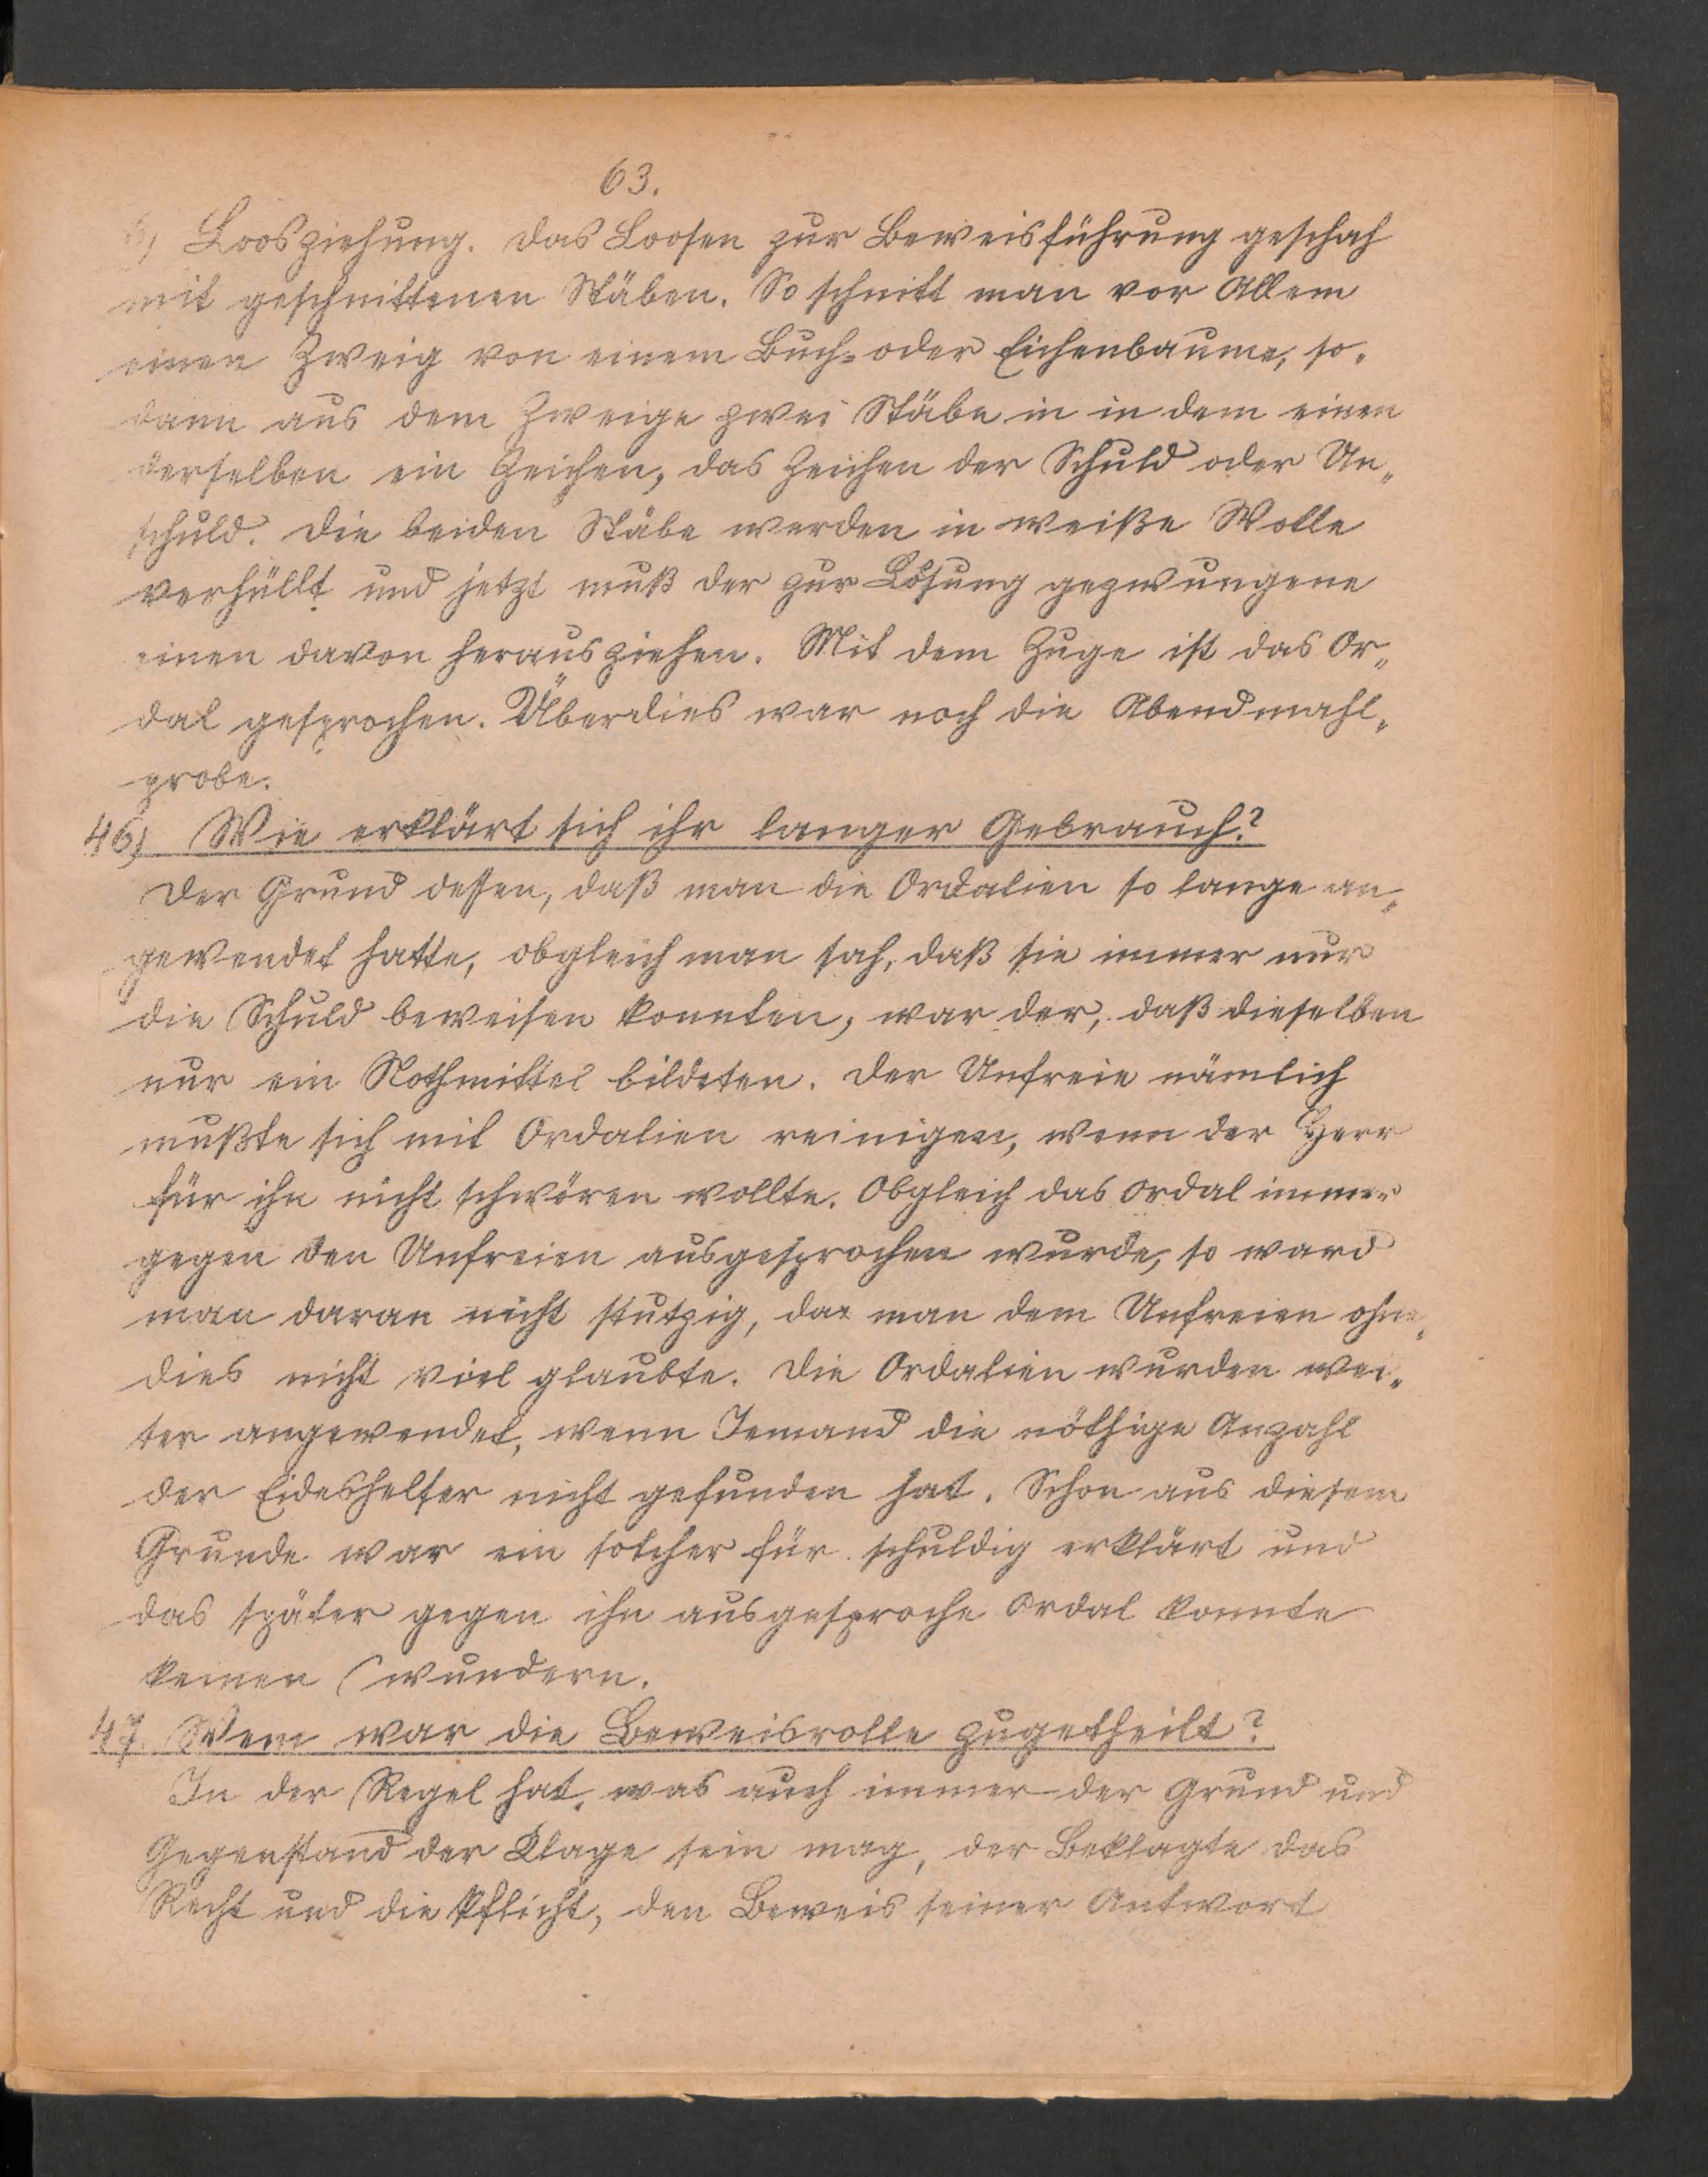 63.
6, Loosziehung. Das Loosen zur Beweisführung geschah
mit geschnittenen Stäben. So schnitt man vor Allem
einen Zweig von einem Buch- oder Eichenbaume, so-
dann aus dem Zweige zwei Stäbe in in dem einen
derselben ein Zeichen, das Zeichen der Schuld oder Un-
schuld. Die beiden Stäbe werden in weiße Wolle
verhüllt und jetzt muß der zur Lösung gezwungene
einen davon herausziehen. Mit dem Zuge ist das Or-
dal gesprochen. Überdies war noch die Abendmahl-
probe.
46, Wie erklärt sich ihr langer Gebrauch?
Der Grund dessen, daß man die Ordalien so lange an-
gewendet hatte, obgleich man sah, daß sie immer nur
die Schuld beweisen konnten, war der, daß dieselben
nur ein Nothmittel bildeten. Der Unfreie nämlich
mußte sich mit Ordalien reinigen, wenn der Herr
für ihn nicht schwören wollte. Obgleich das Ordal immer
gegen den Unfreien ausgesprochen wurde, so ward
man daran nicht stutzig, da man dem Unfreien ohne-
dies nicht viel glaubte. Die Ordalien wurden wei-
ter angewendet, wenn Jemand die nöthige Anzahl
der Eideshelfer nicht gefunden hat. Schon aus diesem
Grunde war ein solcher für schuldig erklärt und
das später gegen ihn ausgesproche Ordal konnte
keinen wundern.
47. Wem war die Beweisrolle zugetheilt?
In der Regel hat, was auch immer der Grund und
Gegenstand der Klage sein mag, der Beklagte das
Recht und die Pflicht, den Beweis seiner Antwort